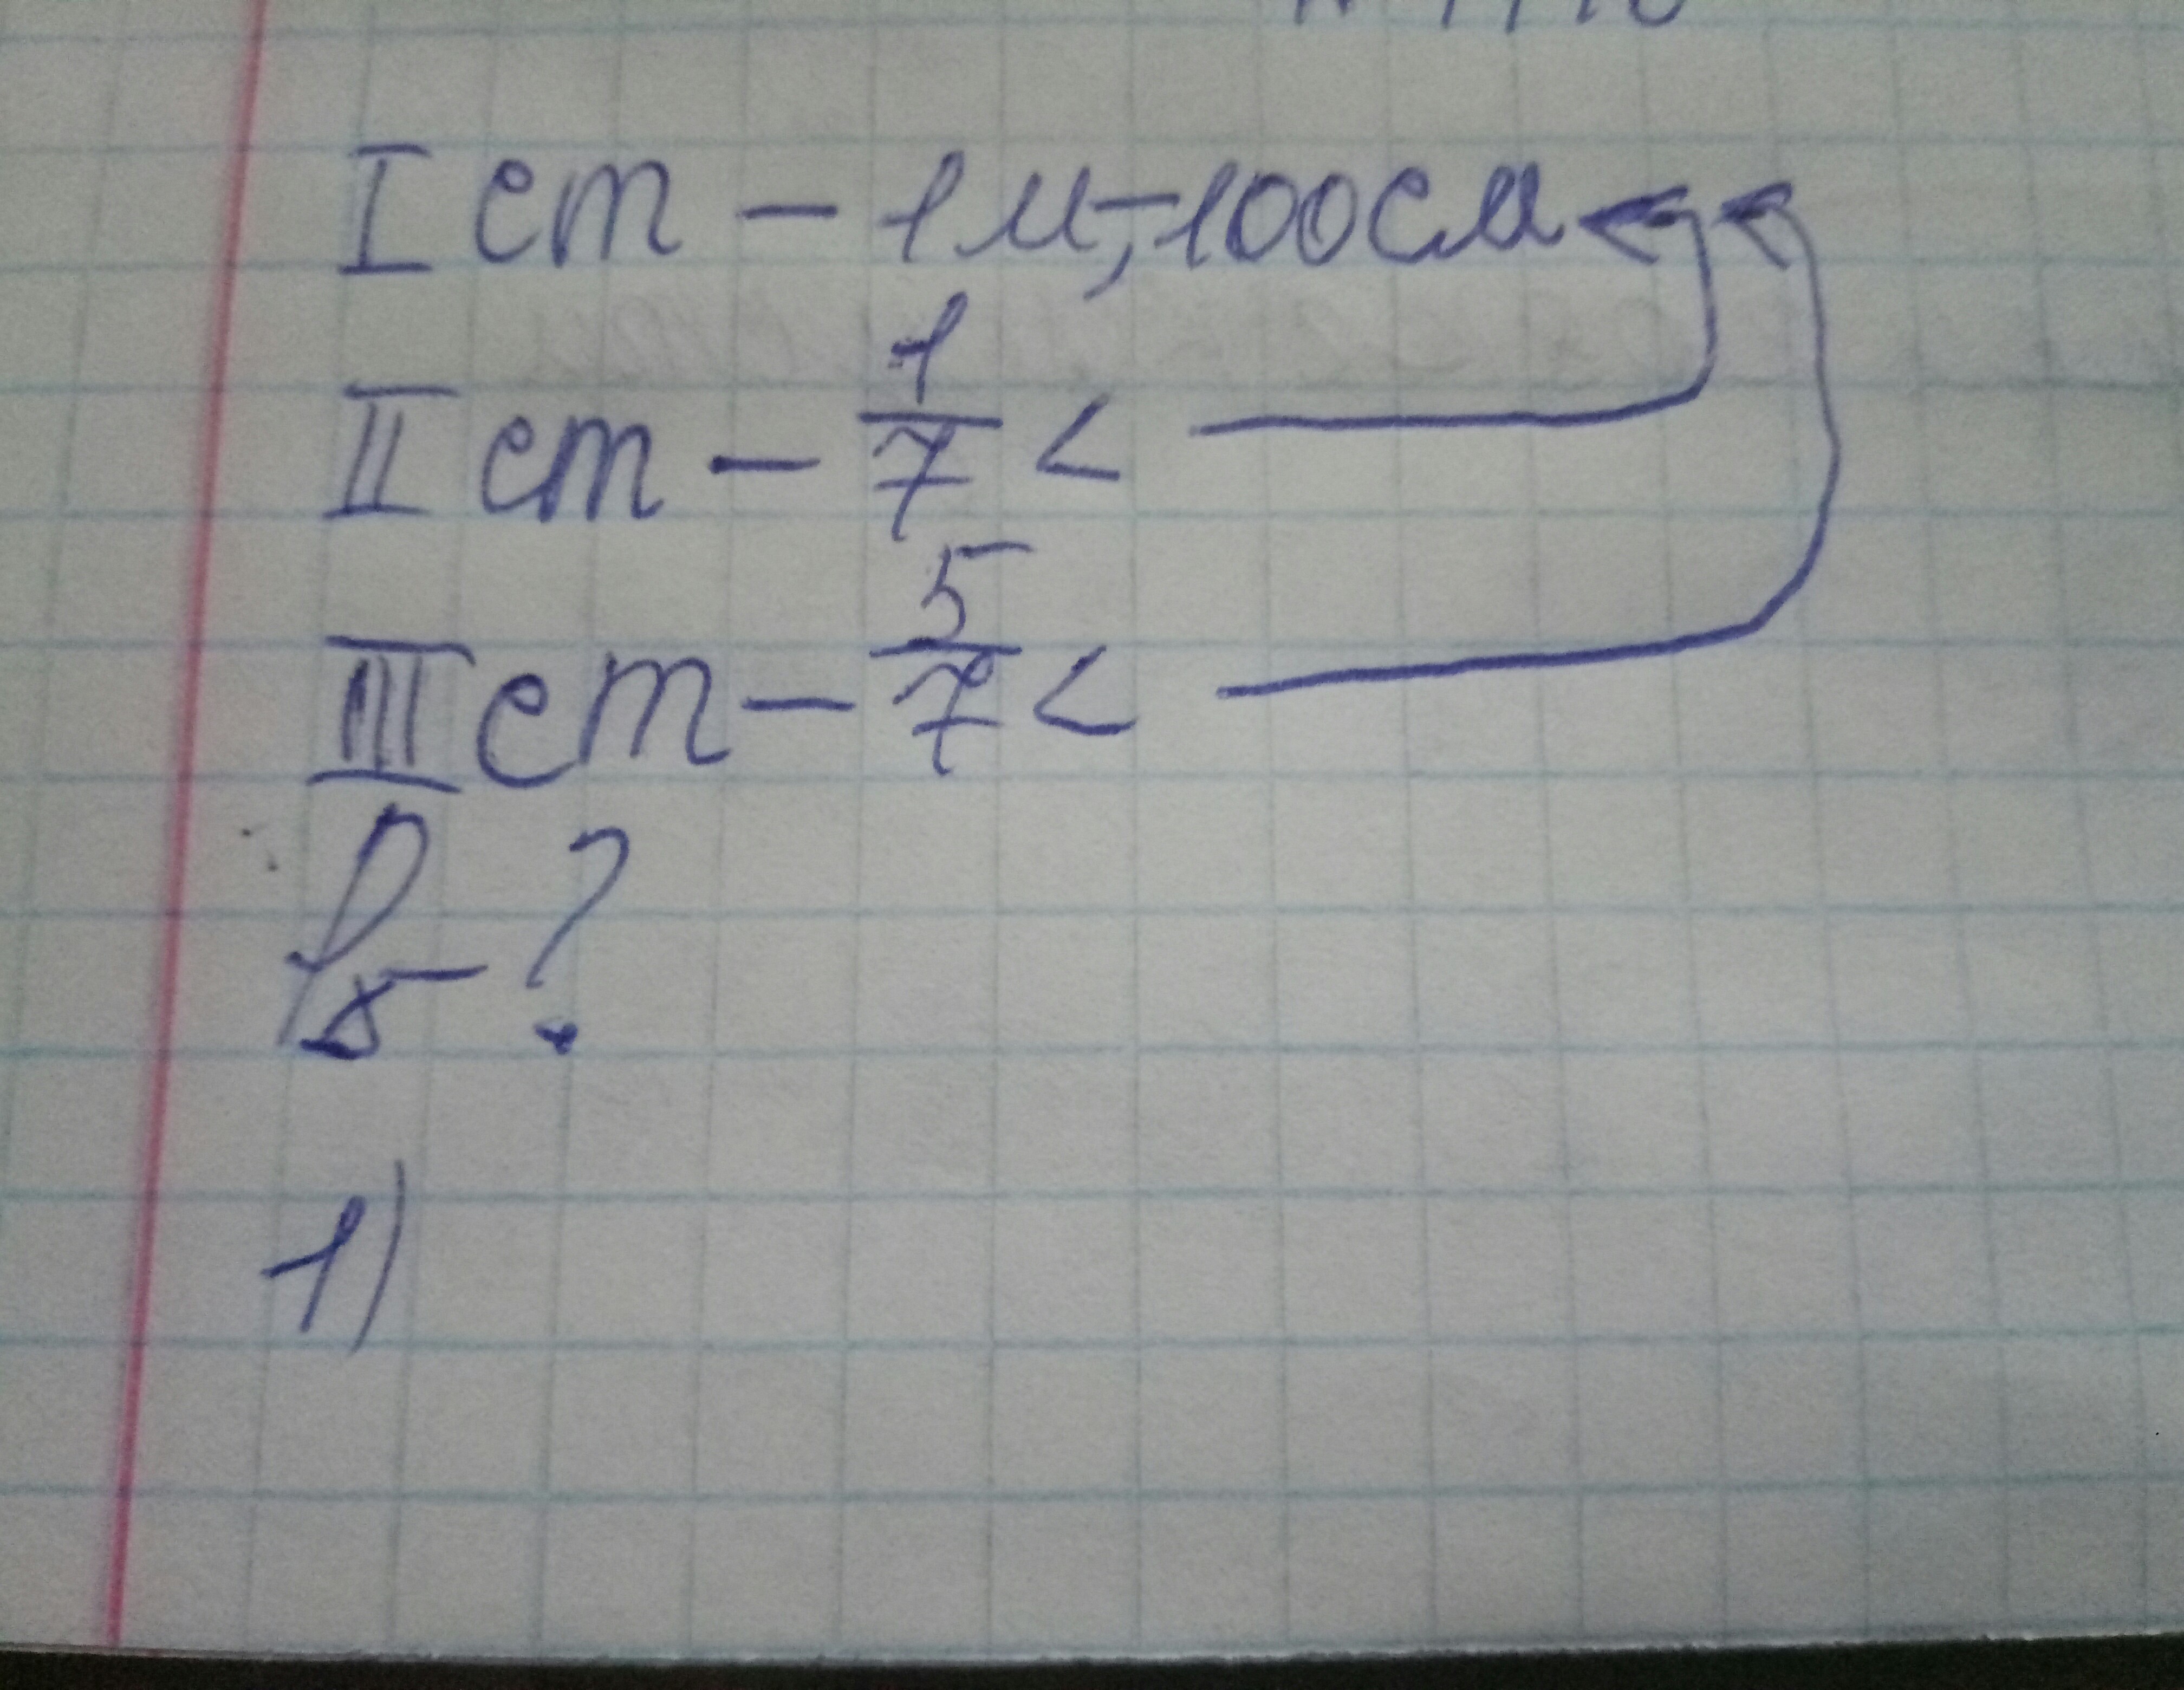 I ст – 1 м, – 100 см
II ст – 1/7 <
III ст – 5/7 <
P△ – ?
1)